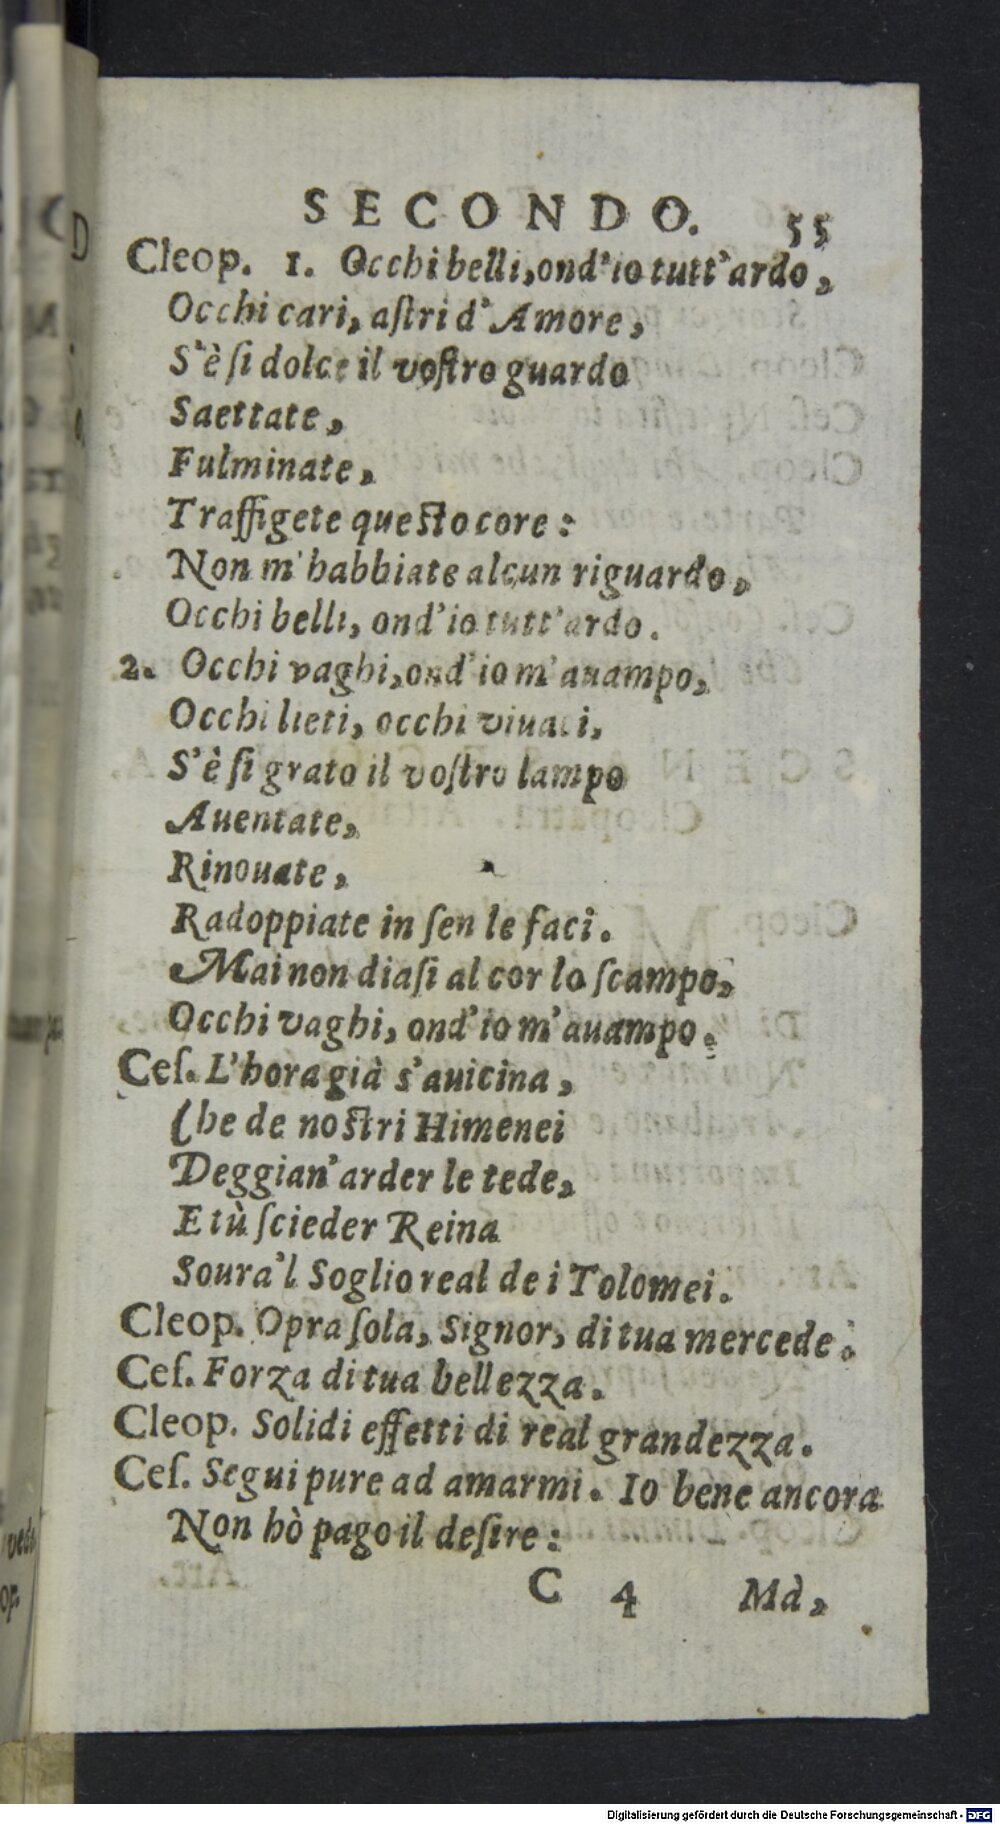 SECONDO. 55
Cleop. 1. Occhi belli, ond'io tutt'ardo,
Occhi cari, aſtri d'Amore,
S'è ſi dolce il voſtro guardo
Saettate,
Fulminate,
Traffigete queſto core:
Non m'habbiate alcun riguardo,
Occhi belli, ond'io tutt'ardo.
2. Occhi vaghi, ond'io m'auampo,
Occhi lieti, occhi viuaci,
S'è ſi grato il voſtro lampo
Auentate,
Rinouate,
Radoppiate in ſen le faci.
Mai non diaſi al cor lo ſcampo,
Occhi vaghi, ond'io m'auampo.
Ceſ. L'hora già s'auicina,
Che de noſtri Himenei
Deggian'arder le tede,
E tù ſcieder Reina
Soura'l Soglio real de i Tolomei.
Cleop. Opra ſola, Signor, di tua mercede.
Ceſ. Forza di tua bellezza.
Cleop. Solidi effetti di real grandezza.
Ceſ. Segui pure ad amarmi. Io bene ancora
Non hò pago il deſire:
C 4 Mà,
Digitalisierung gefördert durch die Deutsche Forschungsgemeinschaft - DFG